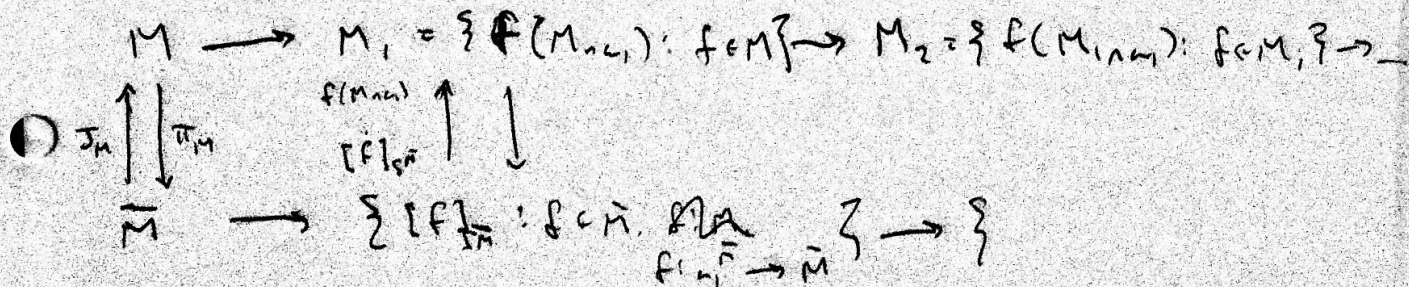 M → M₁ = { f(M∩ω₁) : f∈M } → M₂ = { f(M₁∩ω₁) : f∈M₁ } → _
f(M∩ω₁)
J_M ↑ ↓ π_M ↑ ↓
M̄ → { [f]_M̄ : f∈M̄. } → {
f: ω₁^M̄ → M̄